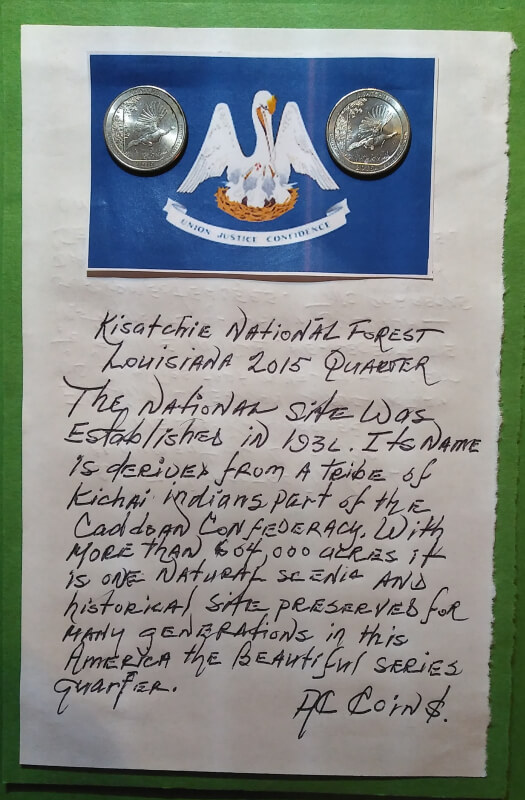 UNION JUSTICE CONFIDENCE
Kisatchie National Forest
Louisiana 2015 Quarter
The National Site Was
Established in 193L. Its Name
is derived from a tribe of
Kichai indians part of the
Caddoan Confederacy. With
more than 604,000 acres it
is one natural scenic and
historical site preserved for
many generations in this
America the Beautiful series
quarter.
AC Coin$.